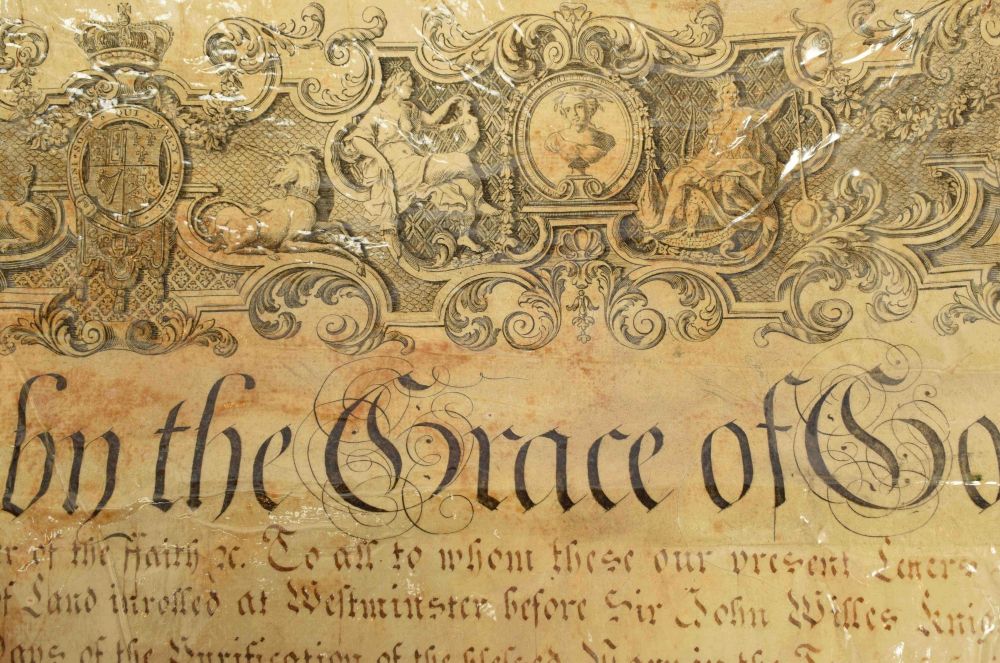 by the Grace of Go
r of the Faith &c. To all to whom these our present Letters
of Land inrolled at Westminster before Sir John Willes Knig
Days of the Purification of the blessed Mary in the